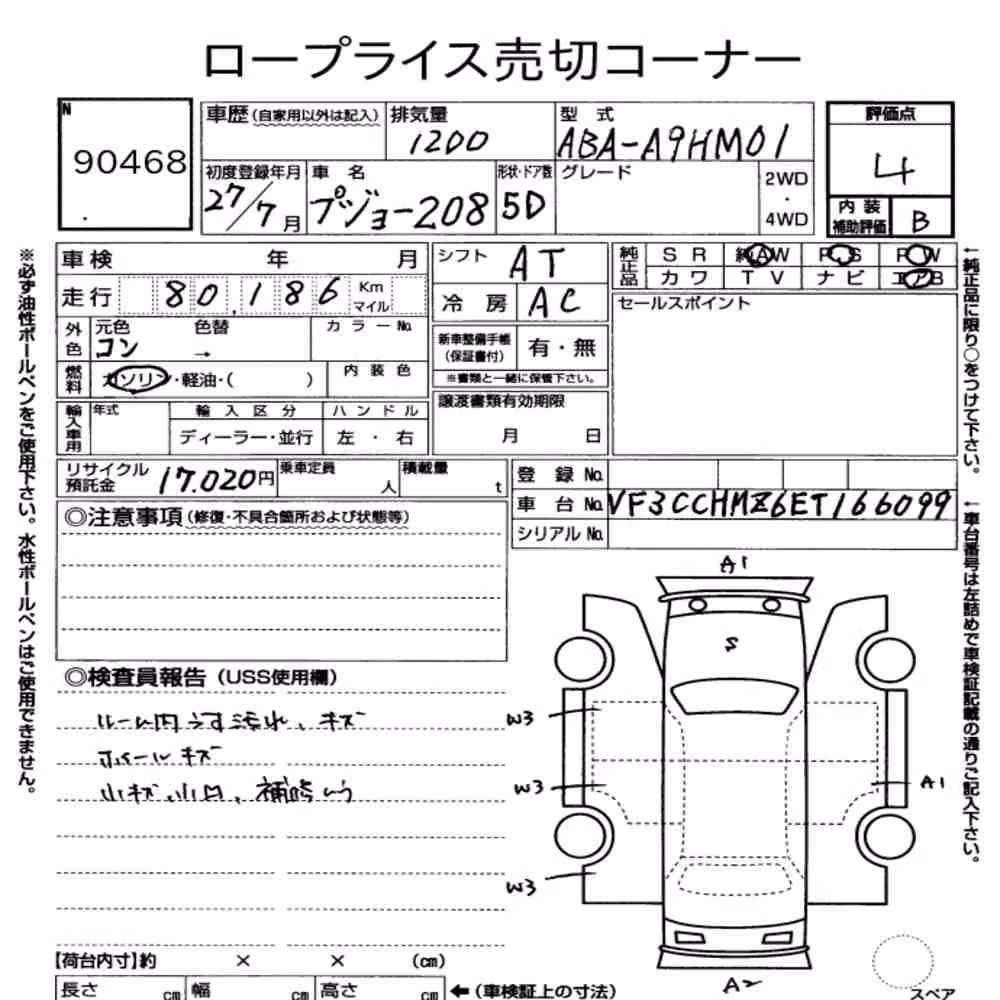 ロープライス売切コーナー
N
90468
車歴(自家用以外は記入)
排気量
1200
型 式
ABA-A9HM01
評価点
4
初度登録年月
27/7月
車 名
プジョー208
形状・ドア数
5D
グレード
2WD
・
4WD
内 装
補助評価
B
車検 年 月
シフト AT
純正品
S R 純AW P.S P.W
カワ TV ナビ エアB
走行 80,186 Km マイル
冷 房 AC
セールスポイント
外色
元色 コン
色替 →
カラーNo.
新車整備手帳
(保証書付)
有・無
※書類と一緒に保管下さい。
燃料
ガソリン・軽油・( )
内装色
譲渡書類有効期限
月 日
輸入車用
年式
輸入区分
ディーラー・並行
ハンドル
左・右
リサイクル
預託金
17.020円
乗車定員
人
積載量
t
登 録 No.
車 台 No. VF3CCHMZ6ET166099
シリアル No.
◎注意事項(修復・不具合箇所および状態等)
◎検査員報告(USS使用欄)
ルーム内うす汚れ、キズ
ホイールキズ
小キズ、小凹、補修いう
A1
S
W3
W3
A1
W3
A2
スペア
【荷台内寸】約 × × (cm)
長さ cm 幅 cm 高さ cm ←(車検証上の寸法)
※必ず油性ボールペンをご使用下さい。水性ボールペンはご使用できません。
←純正品に限り○をつけて下さい。
←車台番号は左詰めで車検証記載の通りご記入下さい。